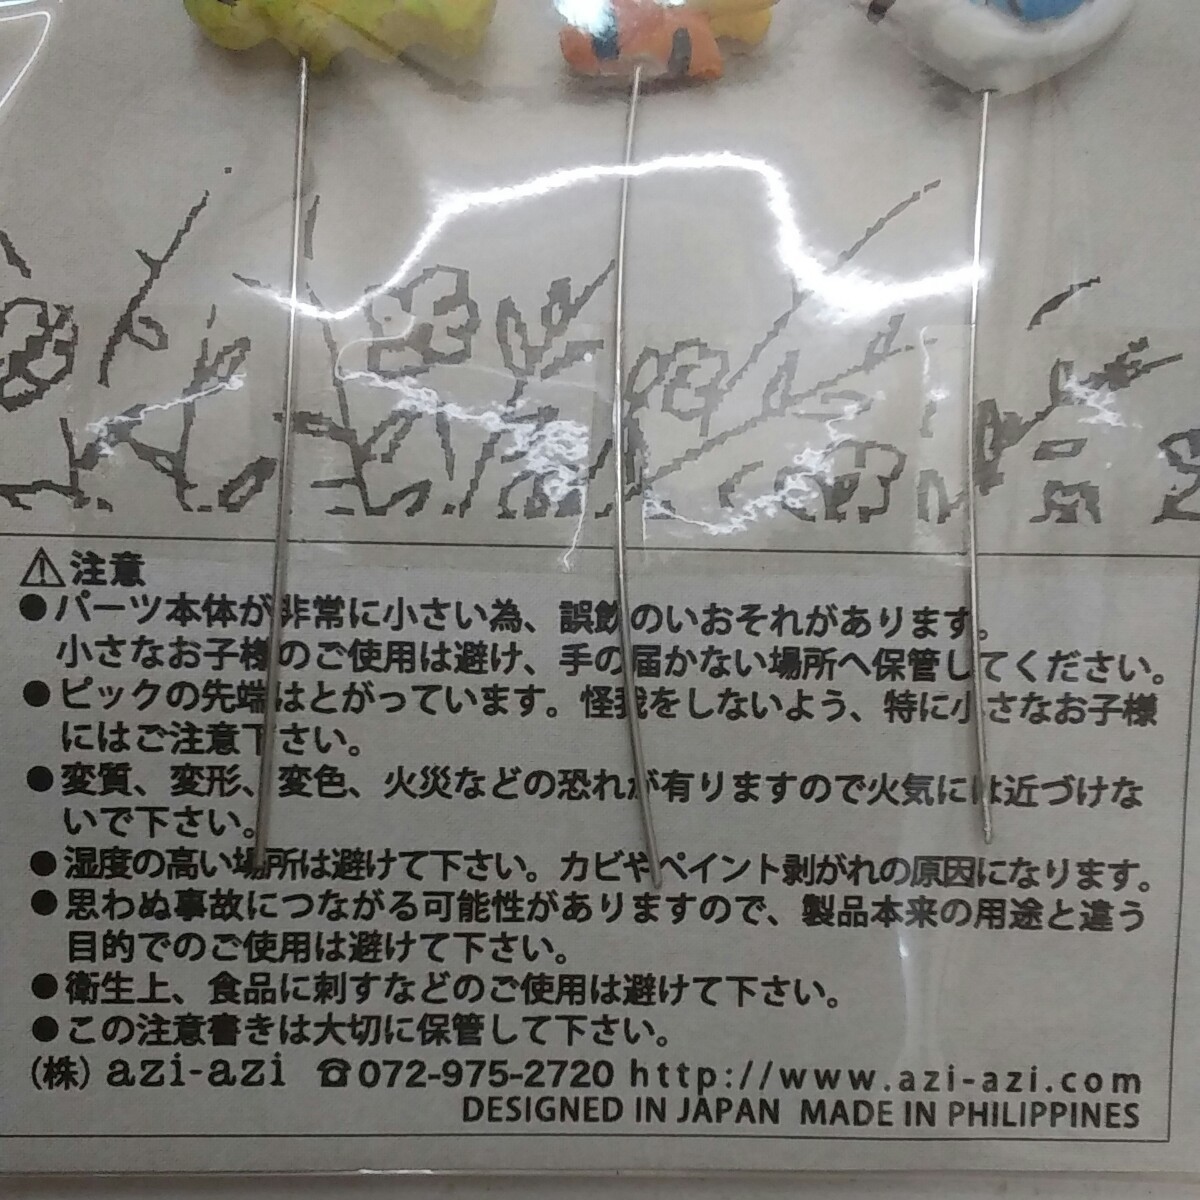 ⚠注意
●パーツ本体が非常に小さい為、誤飲のいおそれがあります。
小さなお子様のご使用は避け、手の届かない場所へ保管してください。
●ピックの先端はとがっています。怪我をしないよう、特に小さなお子様
にはご注意下さい。
●変質、変形、変色、火災などの恐れが有りますので火気には近づけな
いで下さい。
●湿度の高い場所は避けて下さい。カビやペイント剥がれの原因になります。
●思わぬ事故につながる可能性がありますので、製品本来の用途と違う
目的でのご使用は避けて下さい。
●衛生上、食品に刺すなどのご使用は避けて下さい。
●この注意書きは大切に保管して下さい。
(株) azi-azi ☎072-975-2720 http://www.azi-azi.com
DESIGNED IN JAPAN MADE IN PHILIPPINES